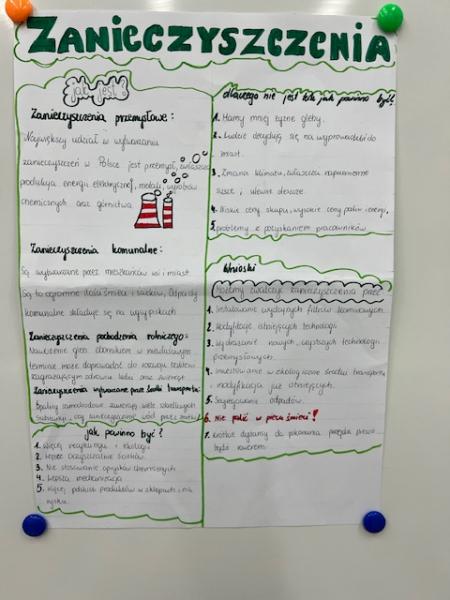 ZANIECZYSZCZENIA
jak jest?
Zanieczyszczenia przemysłowe:
Największy udział w wytwarzaniu
zanieczyszczeń w Polsce jest przemysł, zwłaszcza
produkcja energii elektrycznej, metali, wyrobów
chemicznych oraz górnictwa.
Zanieczyszczenia komunalne:
Są wytwarzane przez mieszkańców wsi i miast.
Są to ogromne ilości śmieci i ścieków. Odpady
komunalne składuje się na wysypiskach
Zanieczyszczenia pochodzenia rolniczego:
Nawożenie gleb obornikiem w niewłaściwym
terminie może doprowadzić do rozwoju bakterii
zagrażającym zdrowiu ludzi oraz zwierząt
Zanieczyszczenia wytwarzane przez środki transportu:
Spaliny samochodowe zawierają wiele szkodliwych
substancji,
jak powinno być?
1. Więcej recyklingu i ekologii
2. Lepsze oczyszczalnie ścieków
3. Nie stosowanie oprysków chemicznych
4. Lepsza mechanizacja
5. Więcej polskich produktów w sklepach i na
rynku.
dlaczego nie jest tak jak powinno być?
1. Mamy mniej żyzne gleby.
2. Ludzie decydują się na wyprowadzki do
miast.
3. Zmiana klimatu, zwłaszcza naprzemienne
susze i ulewne deszcze.
4. Niskie ceny skupu, wysokie ceny paliw i energi.
5. problemy z pozyskaniem pracowników
Wnioski
Możemy zwalczyć zanieczyszczenia przez
1. Instalowanie wydajnych filtrów kominowych.
2. Modyfikację istniejących technologii
3. Wdrażanie nowych, czystszych technologii
przemysłowych.
4. Inwestowanie w ekologiczne środki transportu
i modyfikacja już istniejących.
5. Segregowanie odpadów.
6. Nie palić w piecu śmieci!
7. Krótkie dystansy do pokonania przejdź pieszo
bądź rowerem.